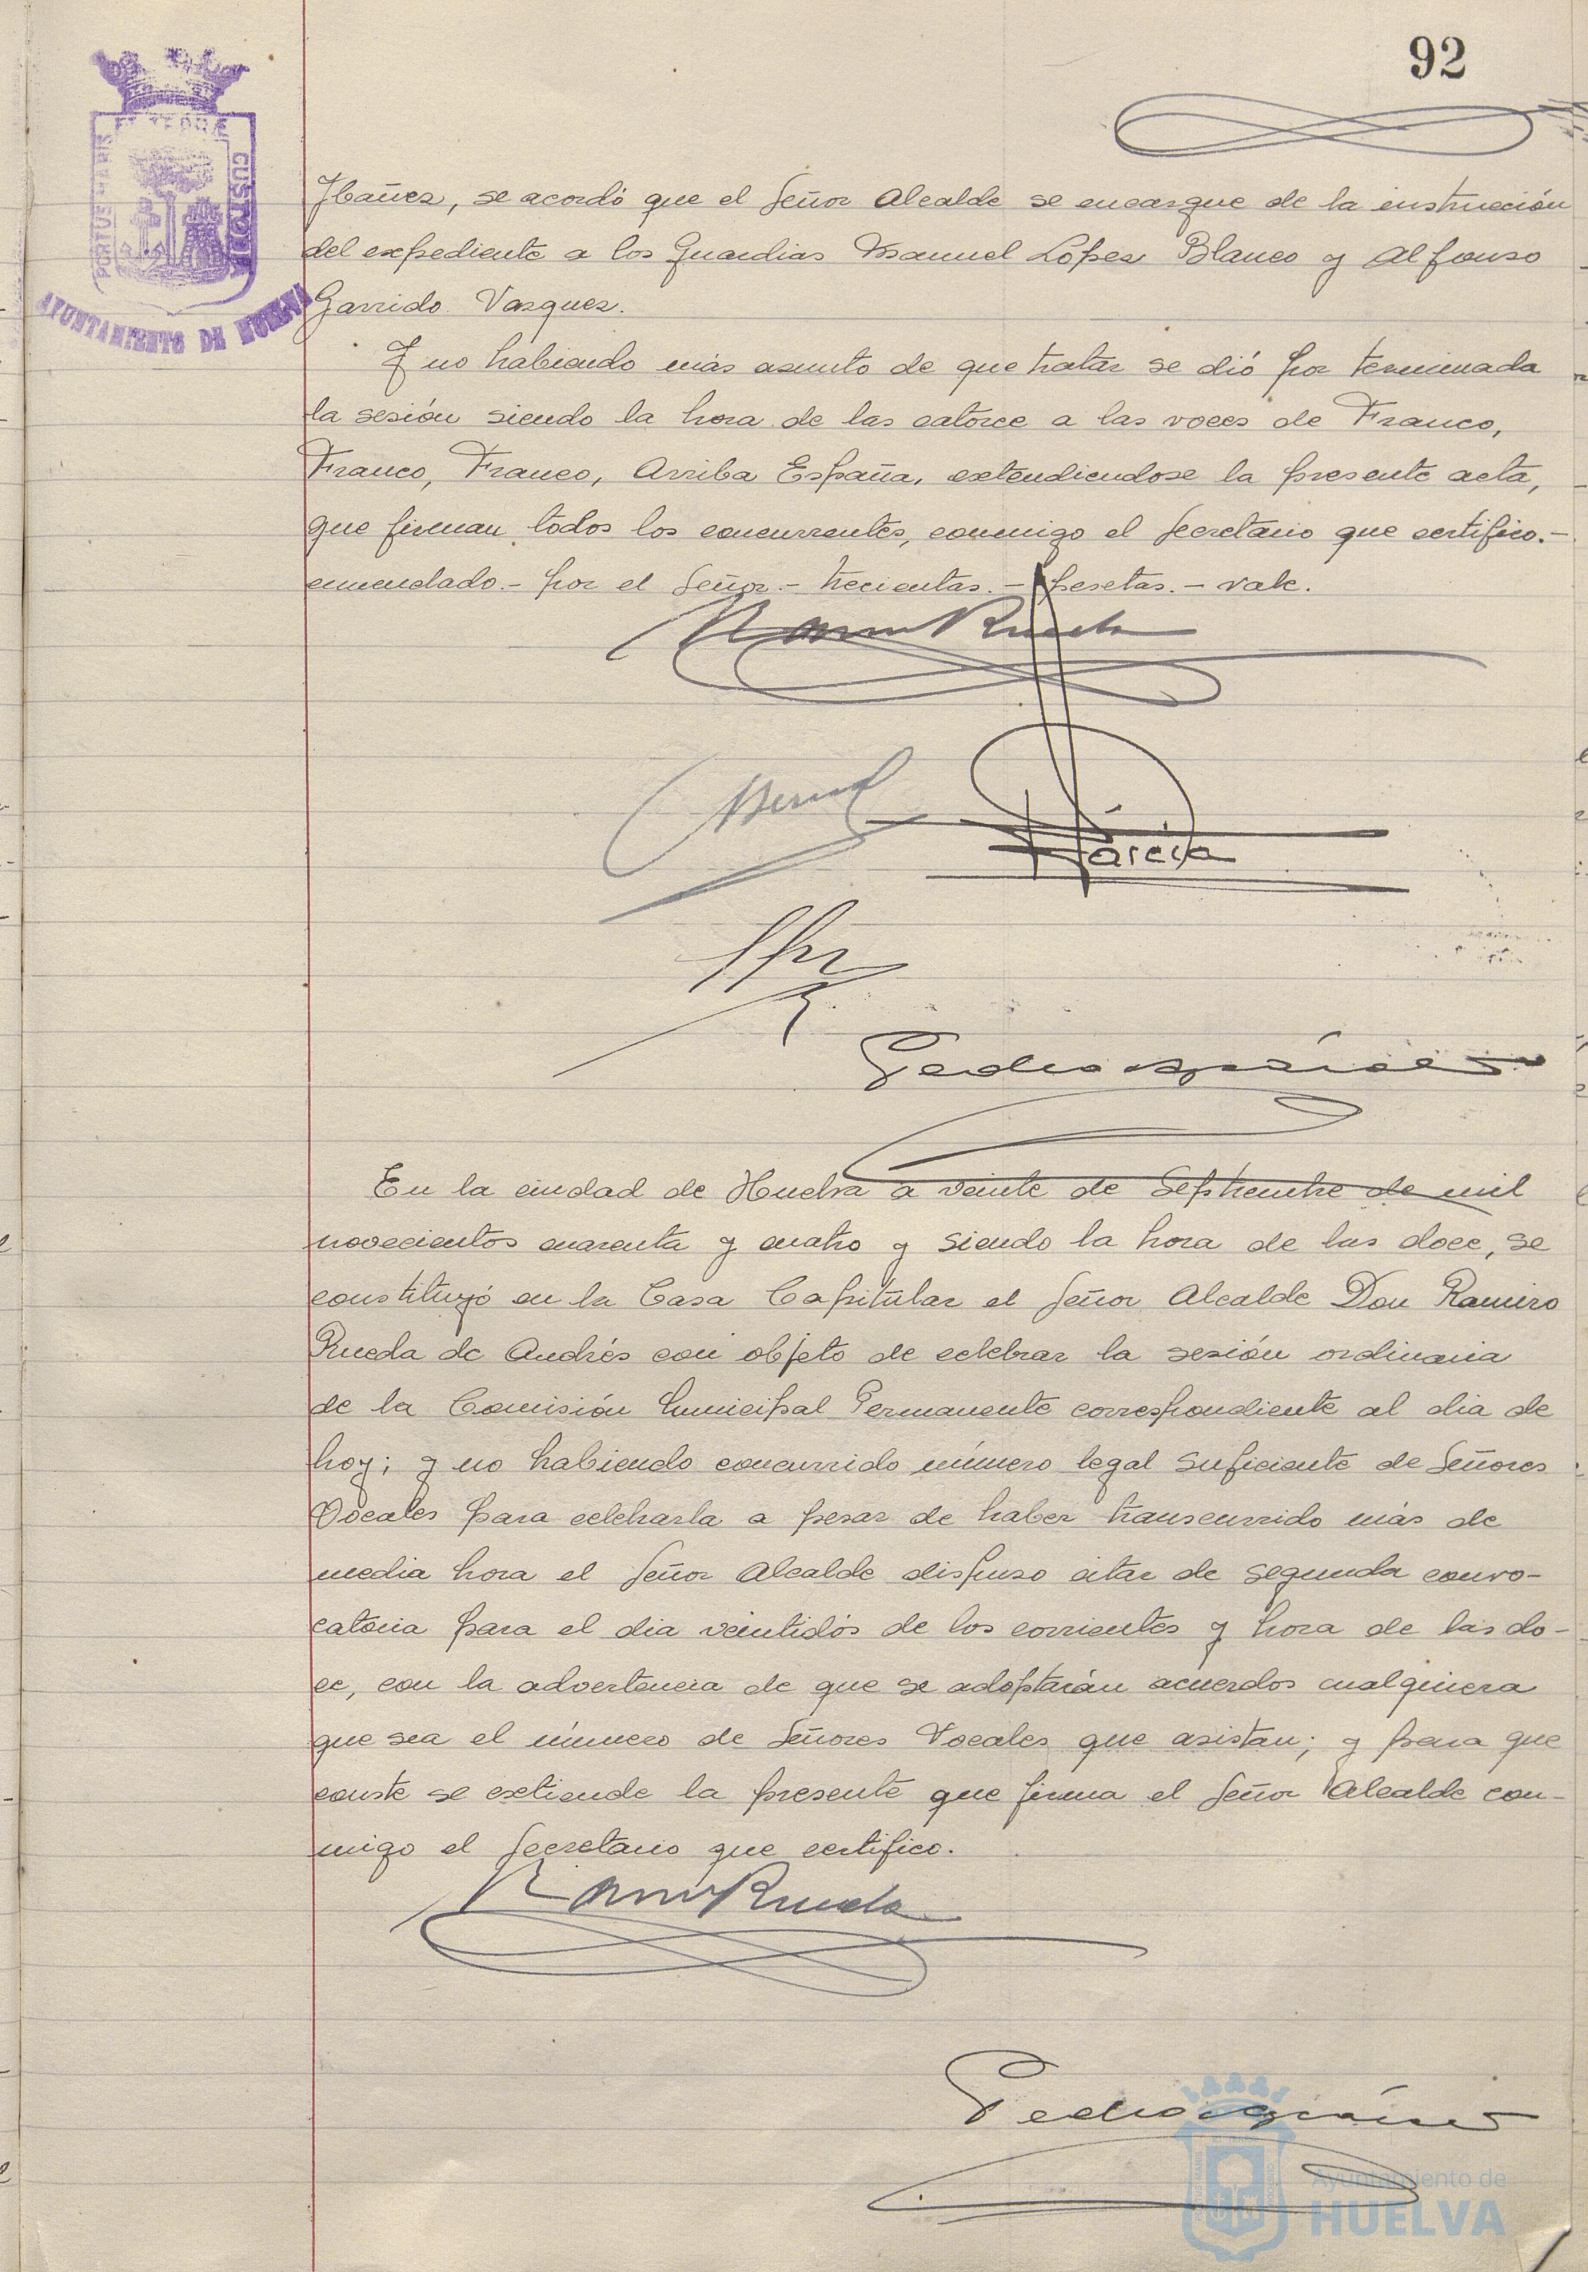 92
PORTUS MARIS ET TERRÆ CUSTODIA
AYUNTAMIENTO DE HUELVA
Ibañez, se acordó que el Señor Alcalde se encargue de la instrucción
del expediente a los Guardias Manuel López Blanco y Alfonso
Garrido Vazquez.
Y no habiendo más asunto de que tratar se dió por terminada
la sesión siendo la hora de las catorce a las voces de Franco,
Franco, Franco, Arriba España, extendiendose la presente acta,
que firman todos los concurrentes, conmigo el Secretario que certifico.-
enmendado.- por el Señor.- trecientas.- pesetas.- vale.
Ramiro Rueda
García
Pedro
En la ciudad de Huelva a veinte de Septiembre de mil
novecientos cuarenta y cuatro y siendo la hora de las doce, se
constituyó en la Casa Capitular el Señor Alcalde Don Ramiro
Rueda de Andrés con objeto de celebrar la sesión ordinaria
de la Comisión Municipal Permanente correspondiente al dia de
hoy; y no habiendo concurrido número legal suficiente de Señores
Vocales para celebrarla a pesar de haber transcurrido más de
media hora el Señor Alcalde dispuso citar de segunda convo-
catoria para el dia veintidós de los corrientes y hora de las do-
ce, con la advertencia de que se adoptarán acuerdos cualquiera
que sea el número de Señores Vocales que asistan; y para que
conste se extiende la presente que firma el Señor Alcalde con-
migo el Secretario que certifico.
Ramiro Rueda
Pedro
Ayuntamiento de
HUELVA